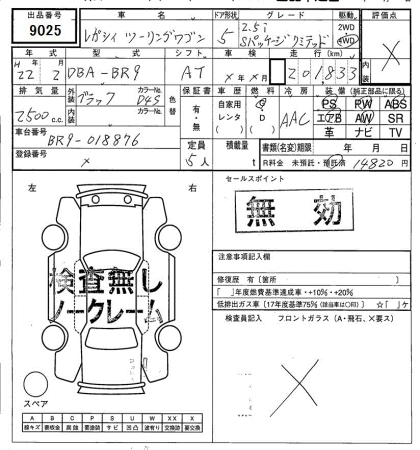 出品番号 車名 ドア形状 グレード 駆動 評価点
9025 レガシィ ツーリングワゴン 5 2.5i Sパッケージリミテッド 2WD 4WD ×
年式 型式 シフト 車検 走行(km) 内装
H 22年 2月 DBA-BR9 AT ×年×月 201,833 ×
排気量 外装 カラーNo. 色替 保証書 車歴 燃料 冷房 装備(純正部品に限る)
2500c.c. ブラック D4S 有・無 自家用 レンタ G D AAC PS PW ABS
内装 カラーNo. エアB AW SR
革 ナビ TV
車台番号 定員 積載量 書類(名変)期限 年 月 日
BR9-018876 5人 t R料金 未預託・預託済 14820円
登録番号
×
左 右 セールスポイント
無効
注意事項記入欄
検査無し
ノークレーム
修復歴 有〔箇所
「 」年度燃費基準達成車・+10%・+20%
低排出ガス車〔17年度基準75%(該当車は○印)〕 ☆「 」ケ
検査員記入 フロントガラス(A・飛石、×要ス)
×
スペア
A B C P S U W X XX
線キズ 要板金 腐蝕 要塗装 サビ 凹凸 波有り 要交換